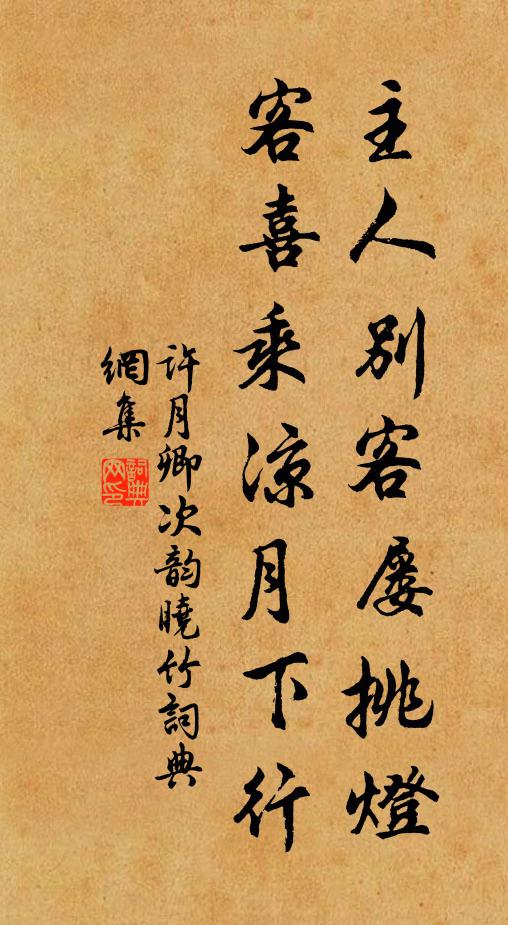 主人別客屢挑燈
客喜乘涼月下行
許月卿次韵曉竹詞典
網集
詞典
网印